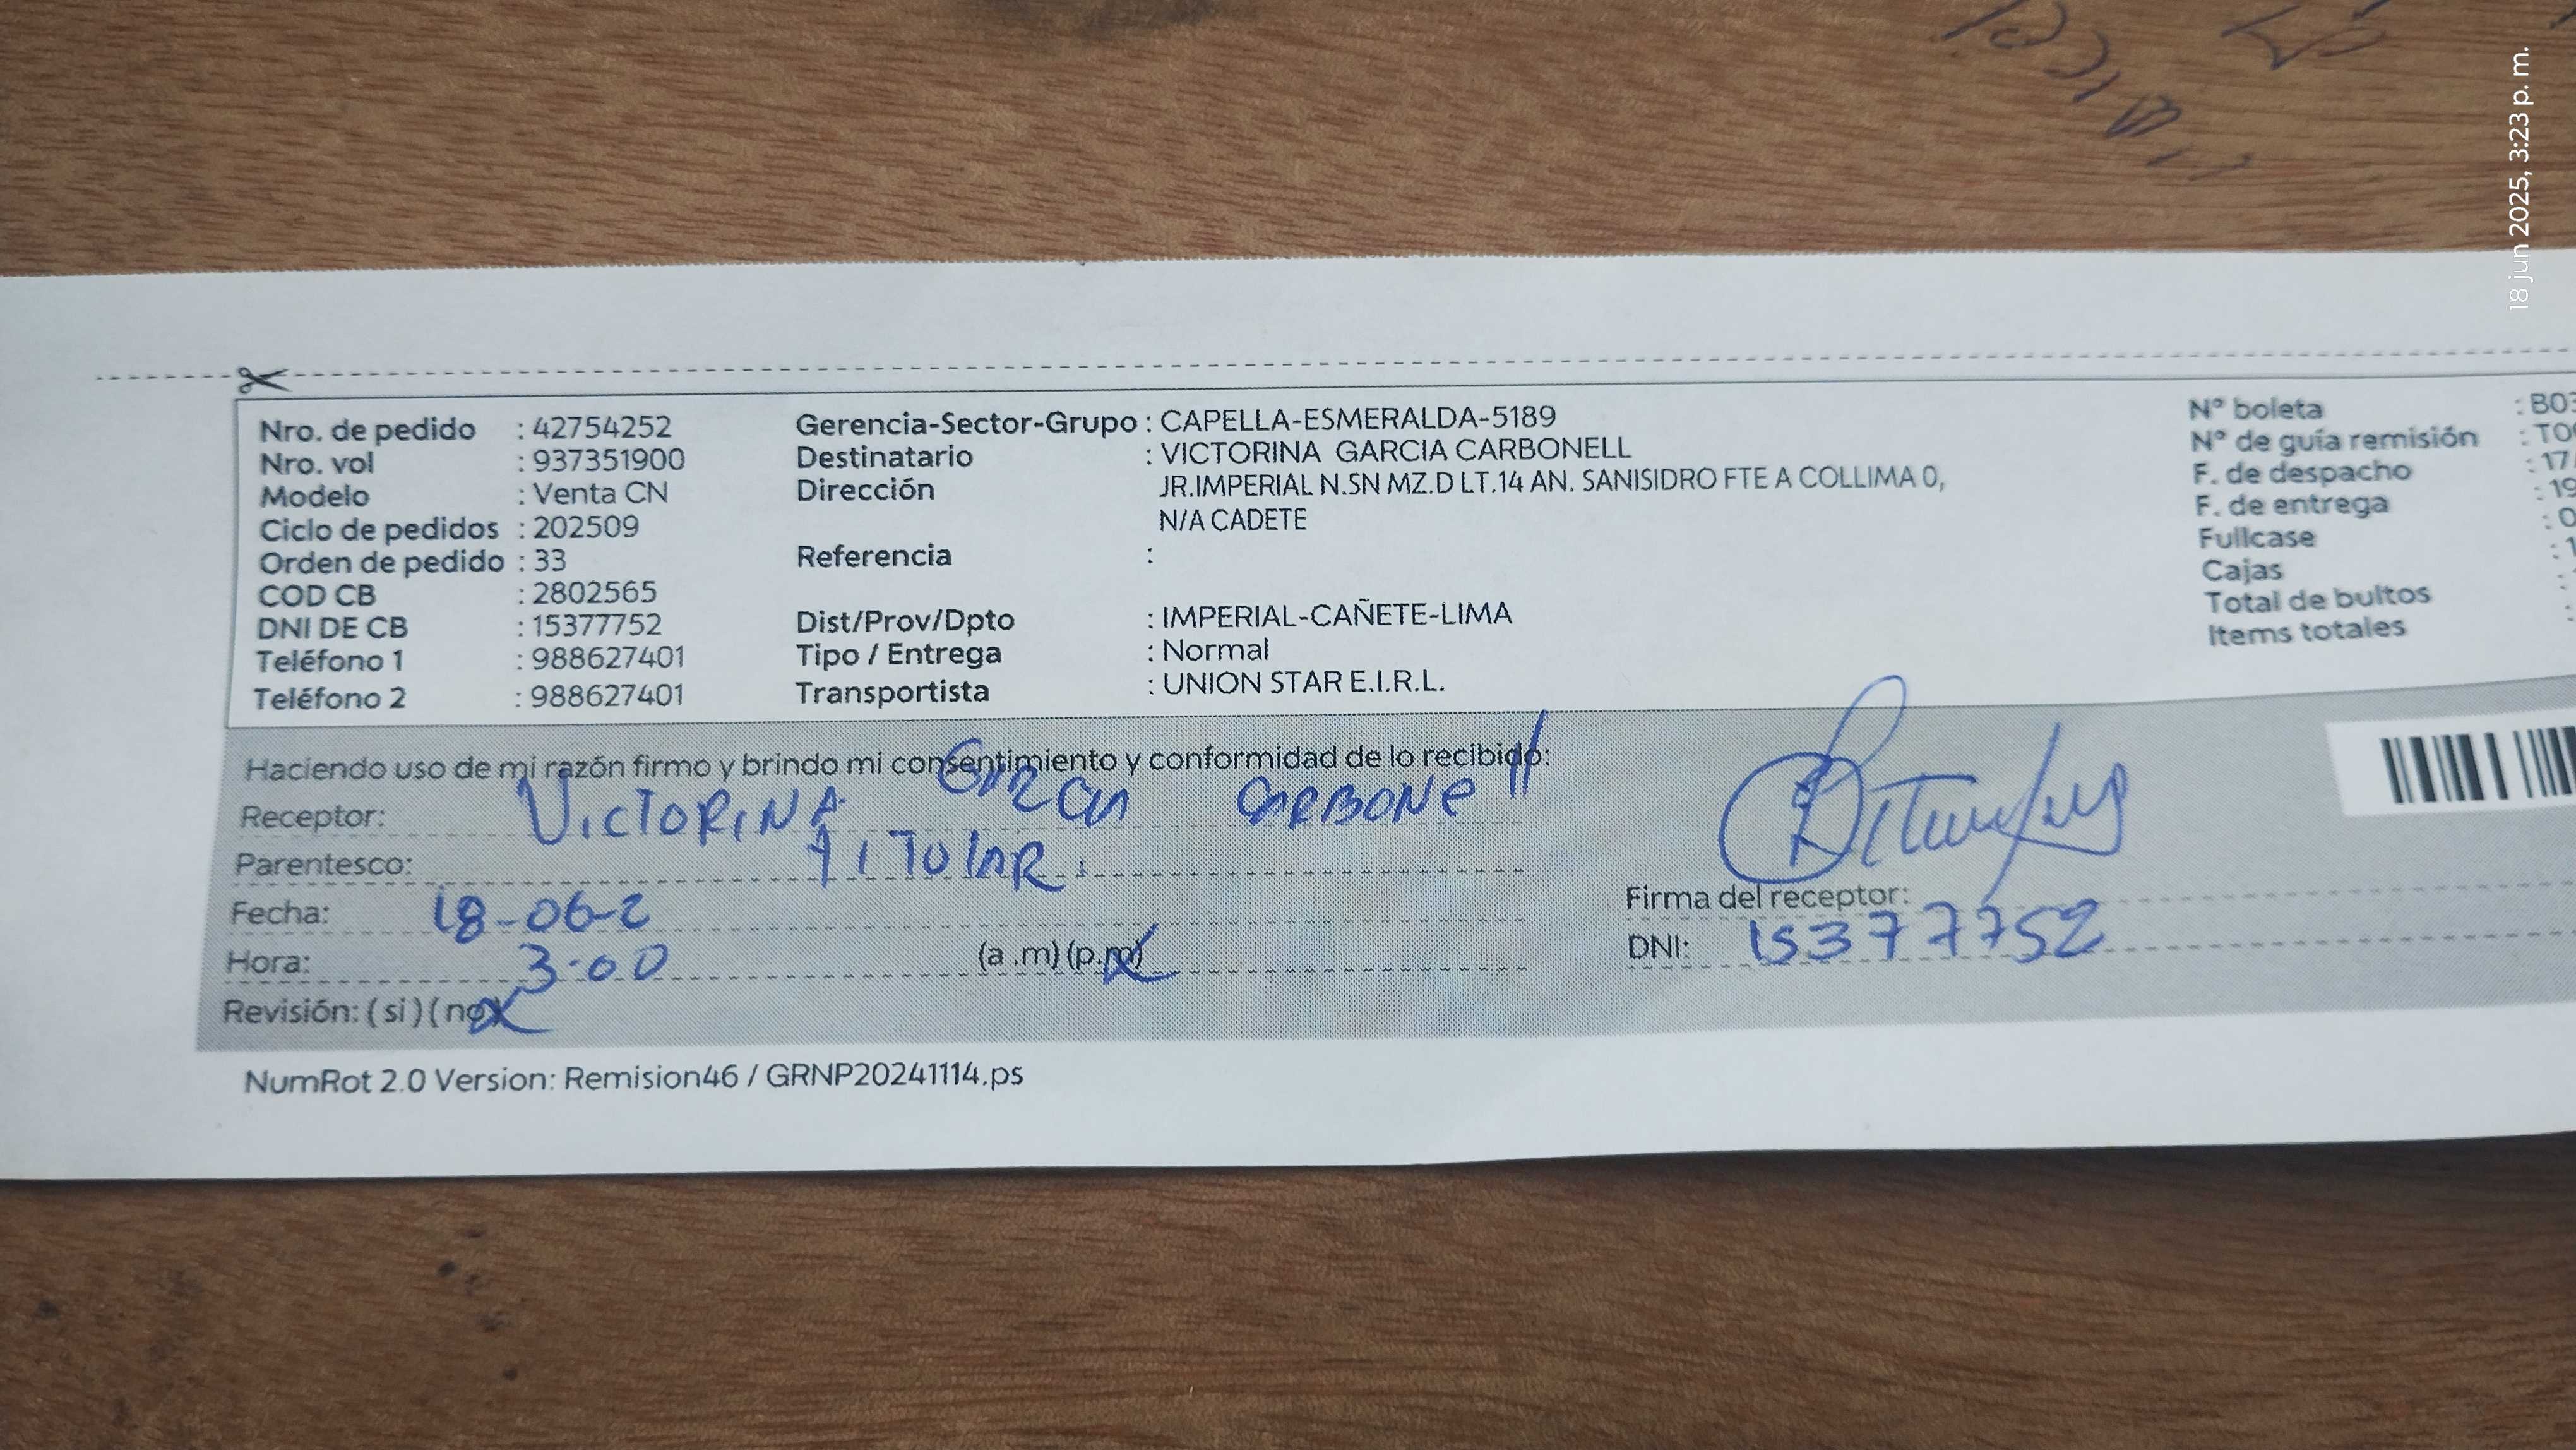 18 jun 2025, 3:23 p. m.
Nro. de pedido : 42754252
Nro. vol : 937351900
Modelo : Venta CN
Ciclo de pedidos : 202509
Orden de pedido : 33
COD CB : 2802565
DNI DE CB : 15377752
Teléfono 1 : 988627401
Teléfono 2 : 988627401
Gerencia-Sector-Grupo : CAPELLA-ESMERALDA-5189
Destinatario : VICTORINA GARCIA CARBONELL
Dirección JR.IMPERIAL N.SN MZ.D LT.14 AN. SANISIDRO FTE A COLLIMA 0,
N/A CADETE
Referencia :
Dist/Prov/Dpto : IMPERIAL-CAÑETE-LIMA
Tipo / Entrega : Normal
Transportista : UNION STAR E.I.R.L.
Nº boleta : B03
Nº de guía remisión :
F. de despacho : 17
F. de entrega : 19
Fullcase : 0
Cajas : 1
Total de bultos :
Items totales :
Haciendo uso de mi razón firmo y brindo mi consentimiento y conformidad de lo recibido:
Receptor: VICTORINA GARCIA CARBONELL
Parentesco: TITULAR.
Fecha: 18-06-2
Hora: 3:00 (a .m) (p.m)
Revisión: ( si ) ( no )
Firma del receptor:
DNI: 15377752
NumRot 2.0 Version: Remision46 / GRNP20241114.ps